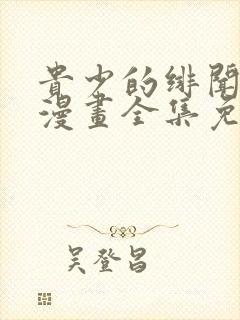 貴少的緋聞
漫畫全集免
吴登昌